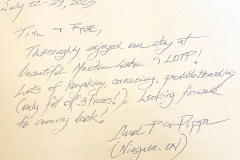 July 22-29, 2025
Tim &
Thoroughly enjoyed our stay at
beautiful
Lots of kayaking, canoeing, paddleboarding
(only fell off 3 times!). Looking forward
to coming back!
(Niagara, ON)